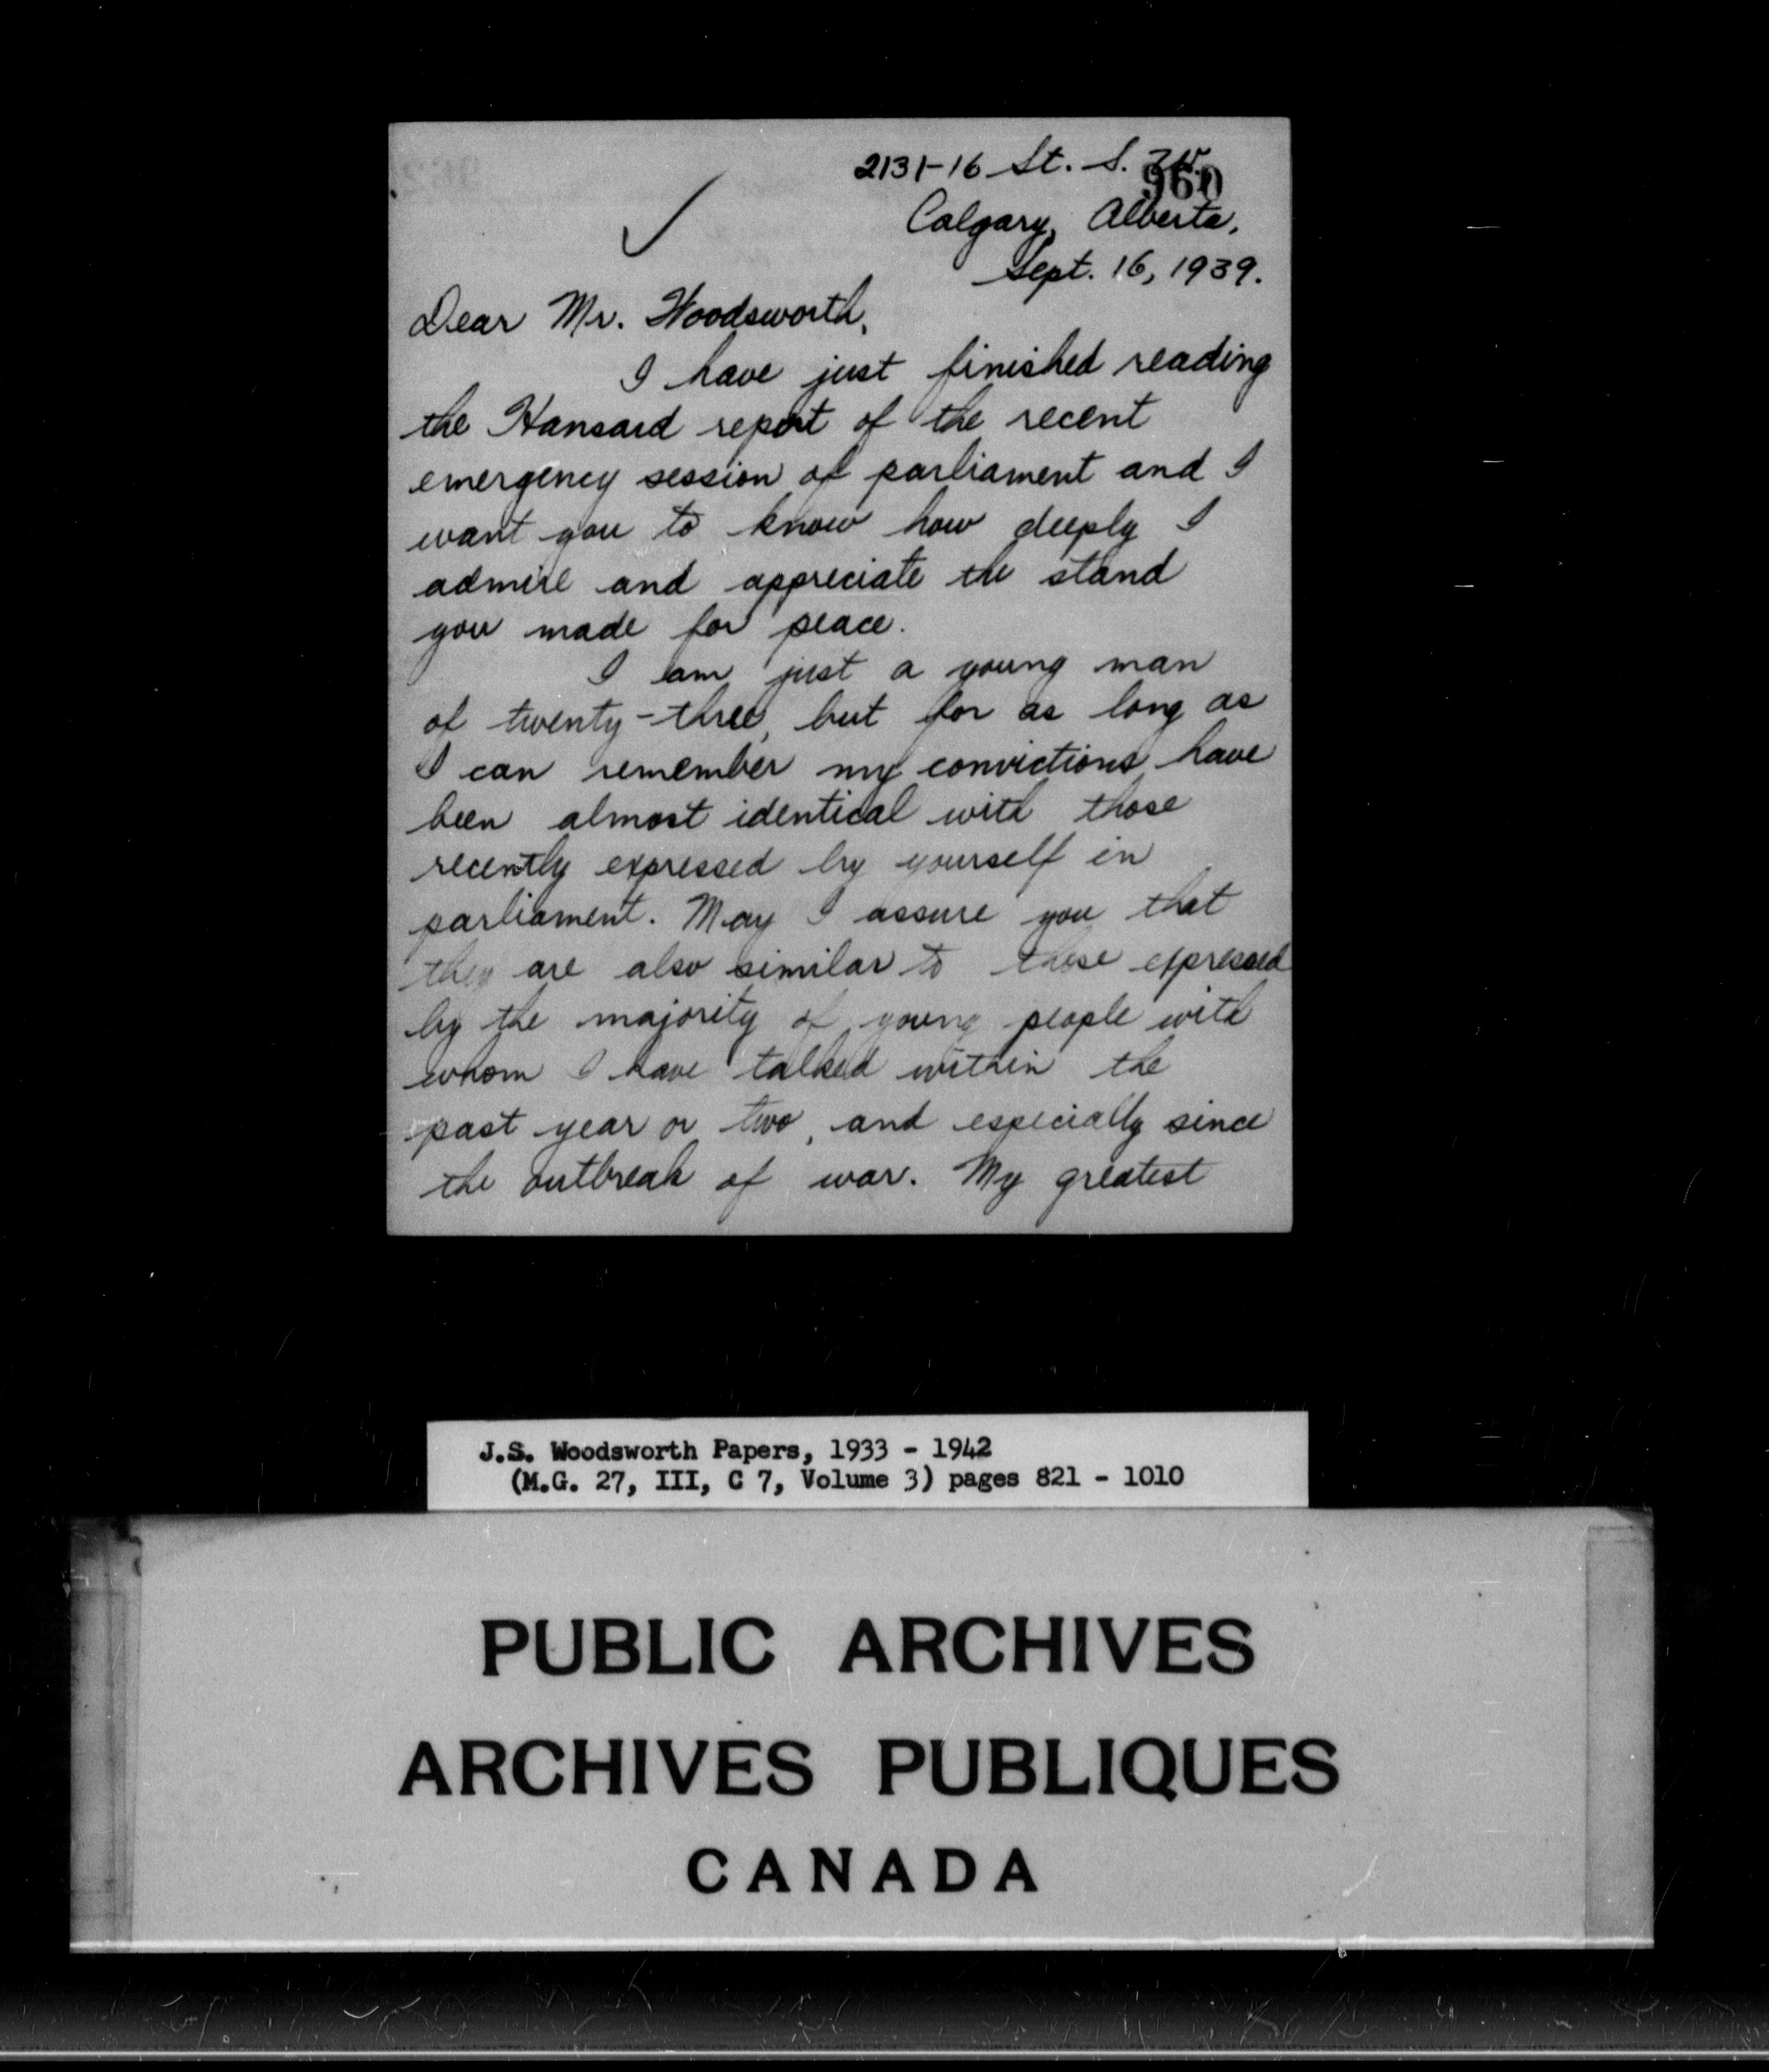 2131-16 St. S. W.
960
Calgary, Alberta,
Sept. 16, 1939.
Dear Mr. Woodsworth,
I have just finished reading
the Hansard report of the recent
emergency session of parliament and I
want you to know how deeply I
admire and appreciate the stand
you made for peace.
I am just a young man
of twenty-three, but for as long as
I can remember my convictions have
been almost identical with those
recently expressed by yourself in
parliament. May I assure you that
they are also similar to those expressed
by the majority of young people with
whom I have talked within the
past year or two, and especially since
the outbreak of war. My greatest
J.S. Woodsworth Papers, 1933 - 1942
(M.G. 27, III, C 7, Volume 3) pages 821 - 1010
PUBLIC ARCHIVES
ARCHIVES PUBLIQUES
CANADA